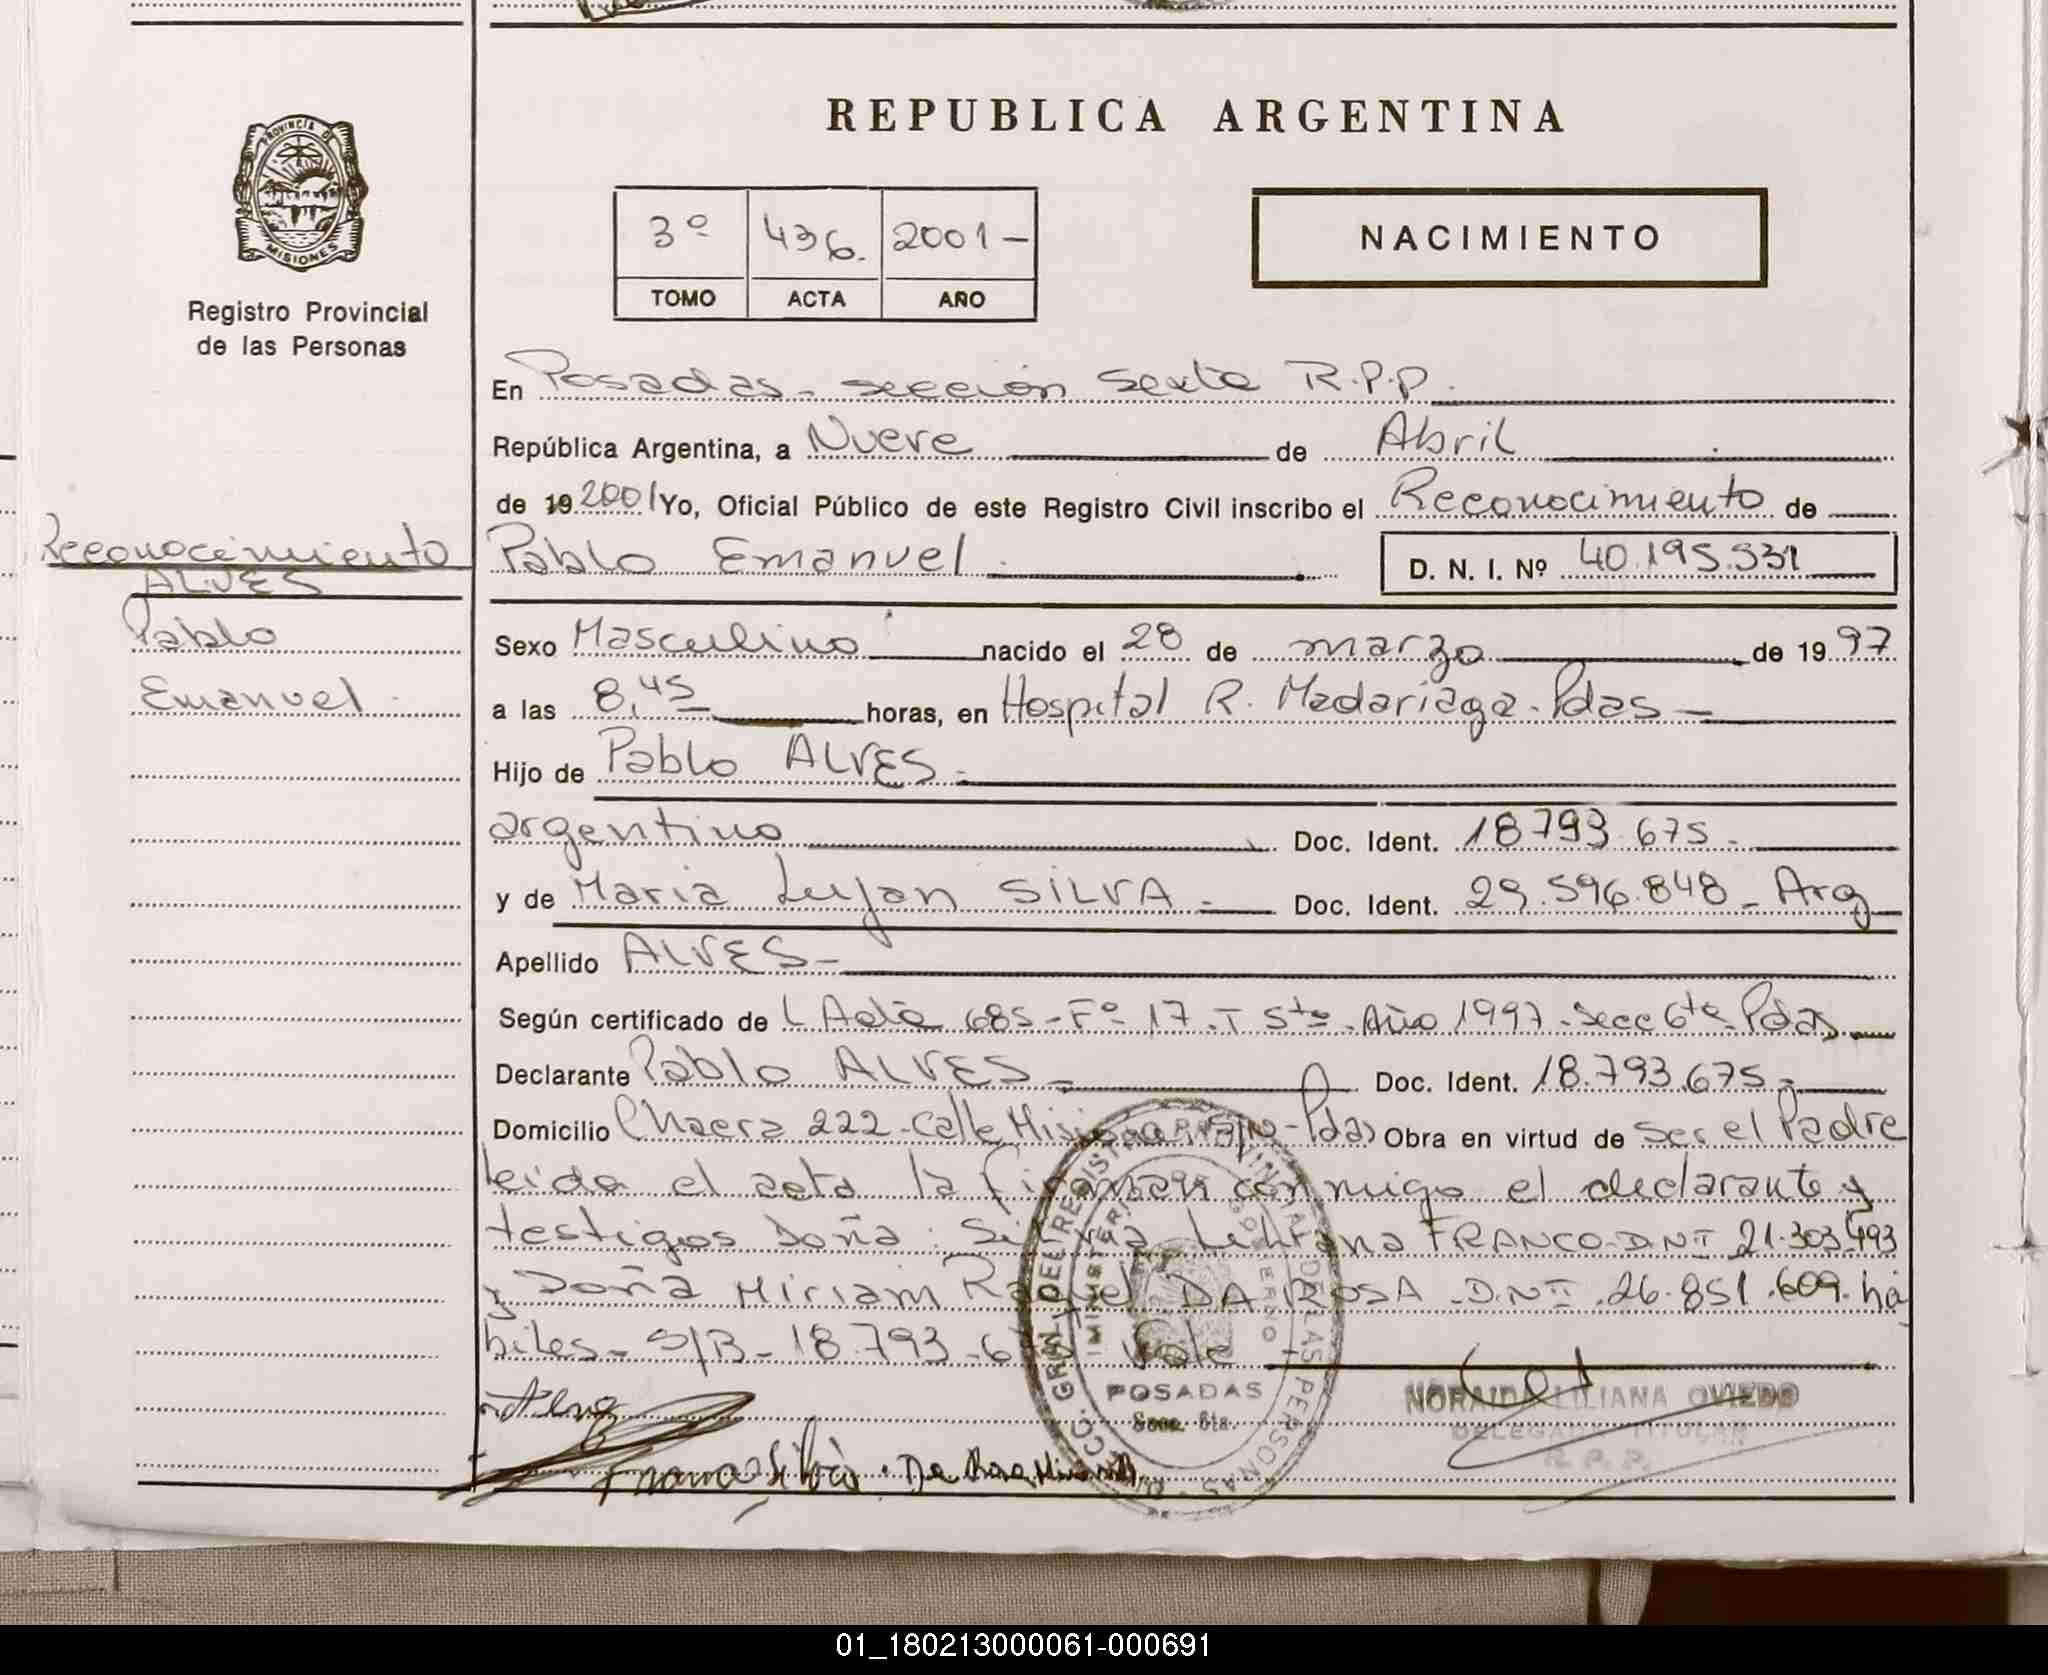 REPUBLICA ARGENTINA
PROVINCIA DE
MISIONES
Registro Provincial
de las Personas
3º 436. 2001-
TOMO ACTA AÑO
NACIMIENTO
En Posadas - sección Sexta R.P.P.
República Argentina, a Nueve de Abril
de 19 2001 Yo, Oficial Público de este Registro Civil inscribo el Reconocimiento de
Reconocimiento
ALVES
Pablo
Emanuel
Pablo Emanuel D. N. I. Nº 40.195.531
Sexo Masculino nacido el 28 de marzo de 19 97
a las 8,45 horas, en Hospital R. Madariaga - Pdas -
Hijo de Pablo ALVES -
argentino Doc. Ident. 18793.675 -
y de Maria Lujan SILVA - Doc. Ident. 29.596.848 - Arg
Apellido ALVES -
Según certificado de Acta 685 - Fº 17 - T 5to - Año 1997 - Secc 6ta Pdas
Declarante Pablo ALVES - Doc. Ident. 18.793.675 -
Domicilio Chacra 222 - Calle Misiones S/N - Pdas Obra en virtud de ser el Padre
leida el acta la firman conmigo el declarante y
testigos Doña: Silvia Liliana FRANCO D.N.I 21.303.493
y Doña Miriam Raquel DA ROSA - D.N.I. 26.851.609. há
biles - S/B - 18.793.675 Vale
POSADAS
Secc. 6ta.
NORAIDA LILIANA OVIEDO
DELEGADA TITULAR
R. P. P.
Franco Silvia. Da Rosa Miriam
01_180213000061-000691